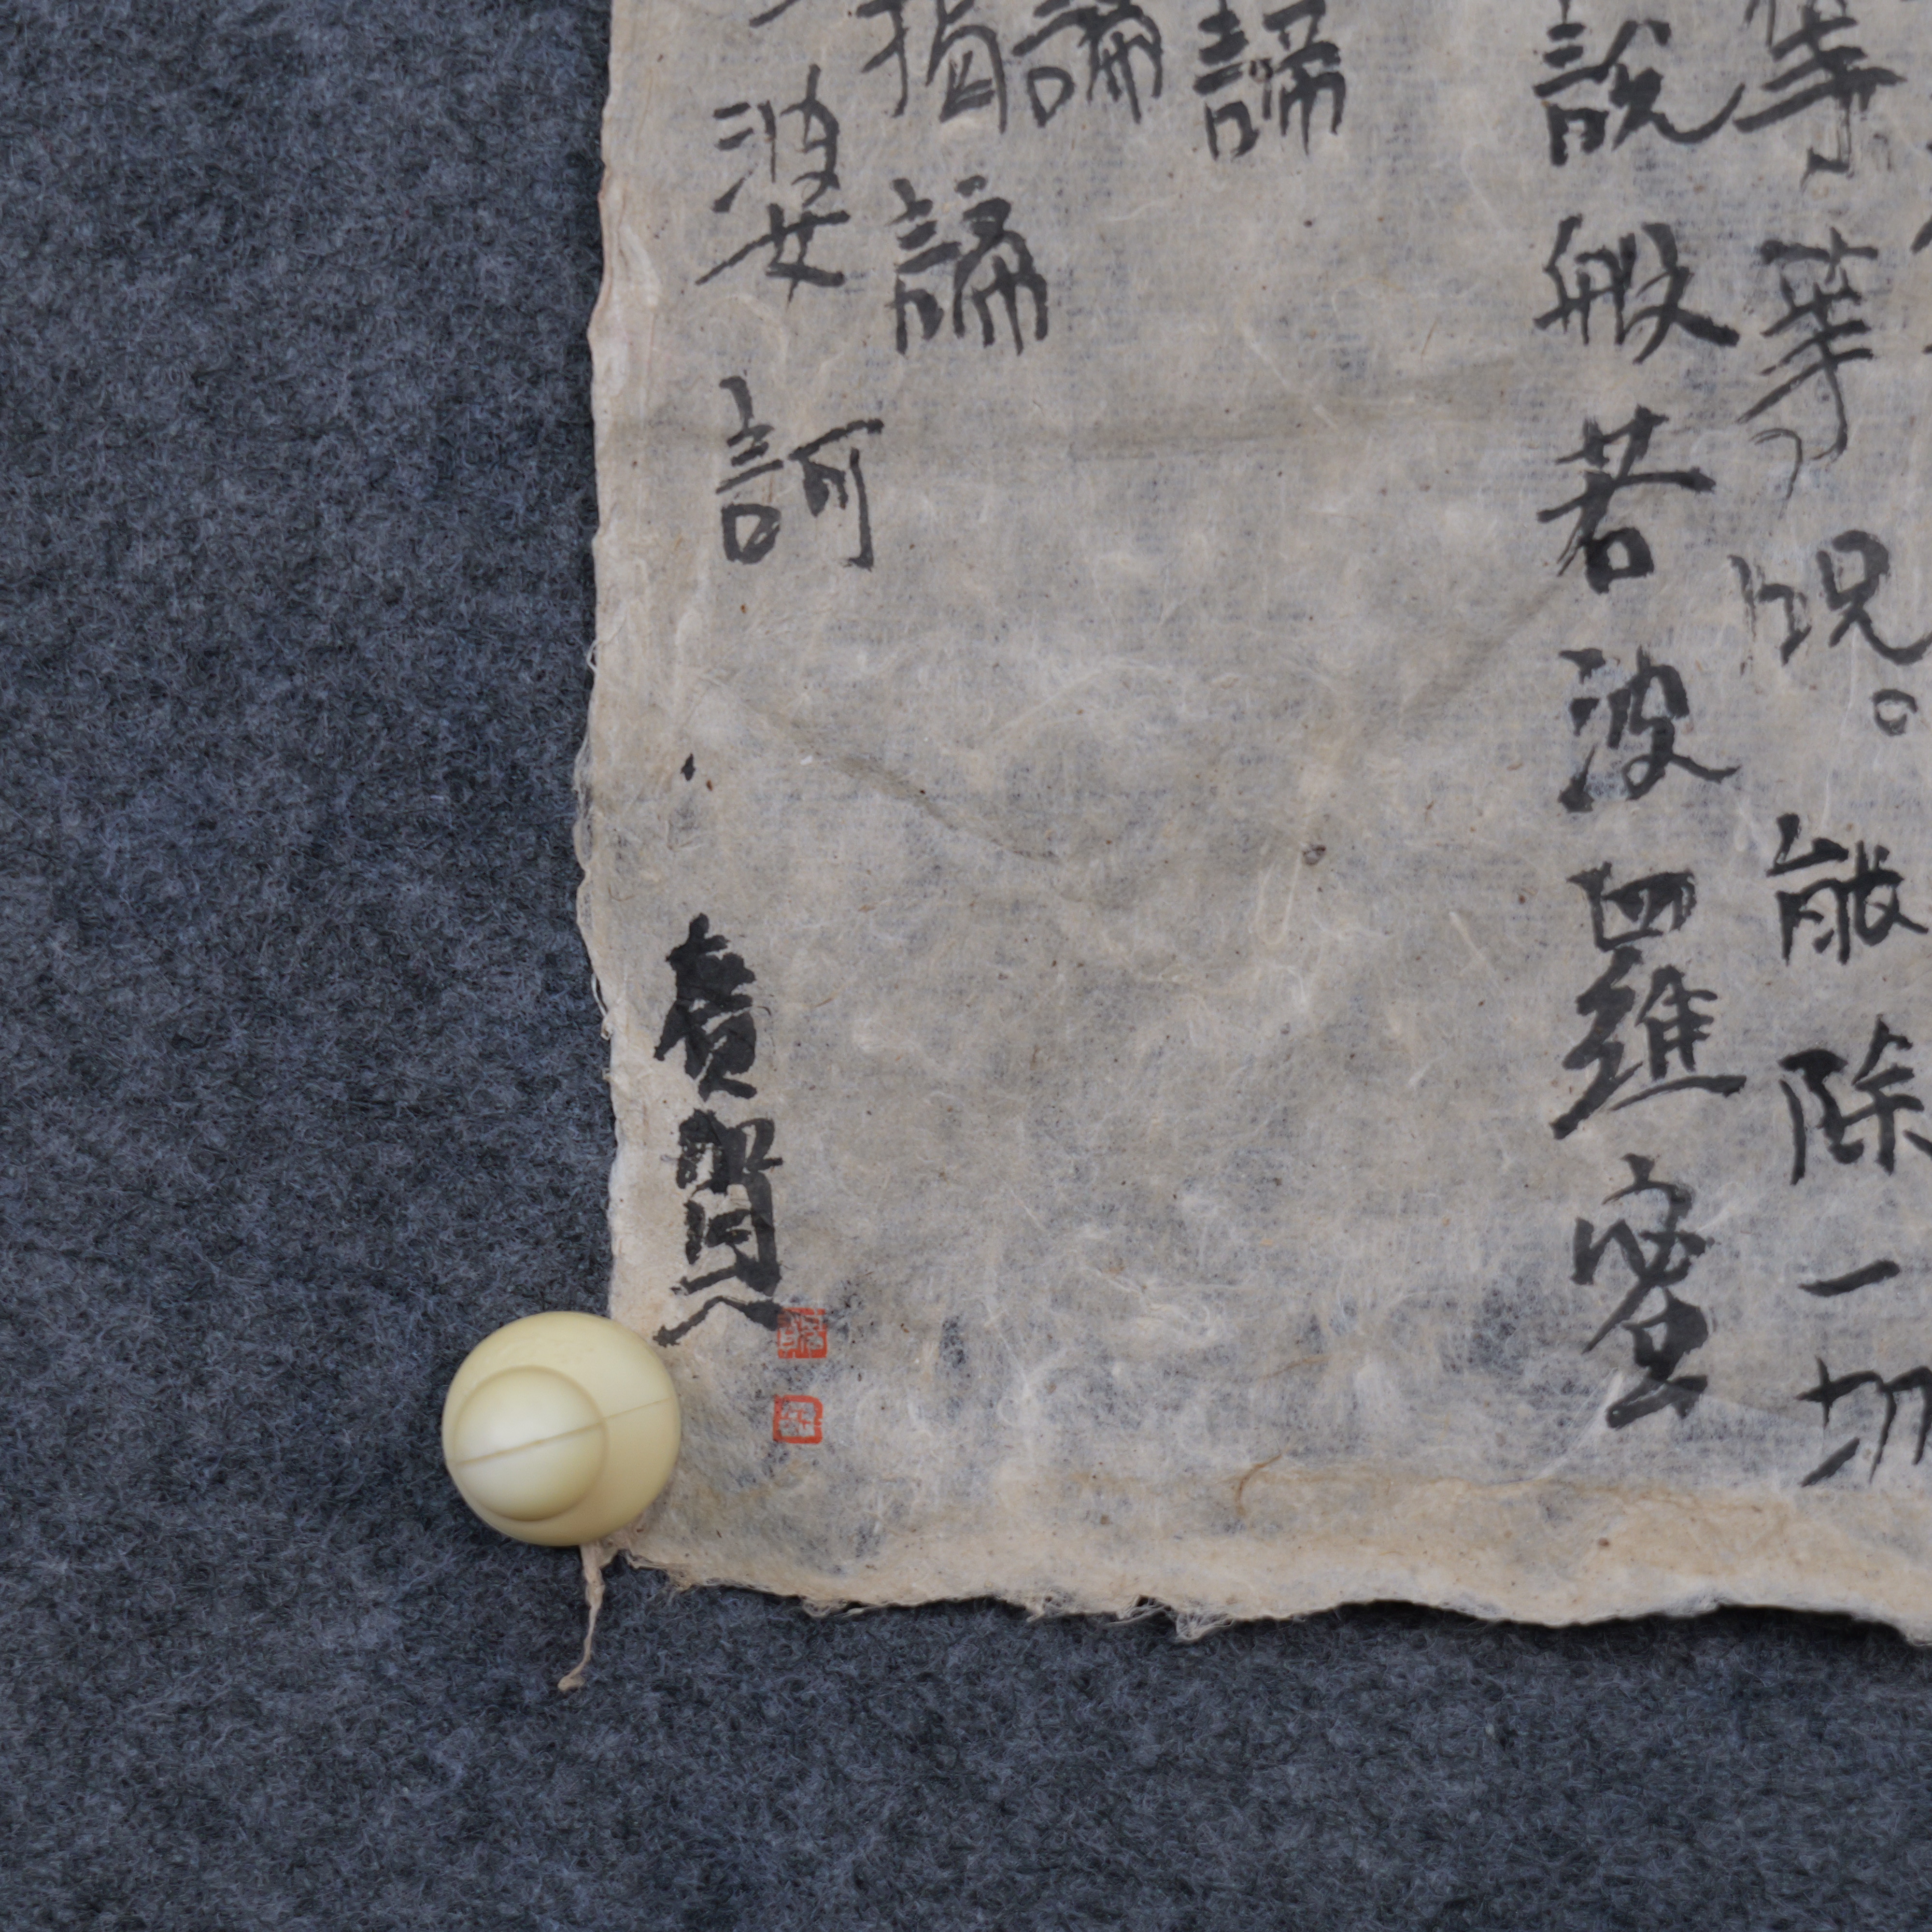 等等呪。能除一切
說般若波羅蜜
諦
諦
揭諦
婆訶